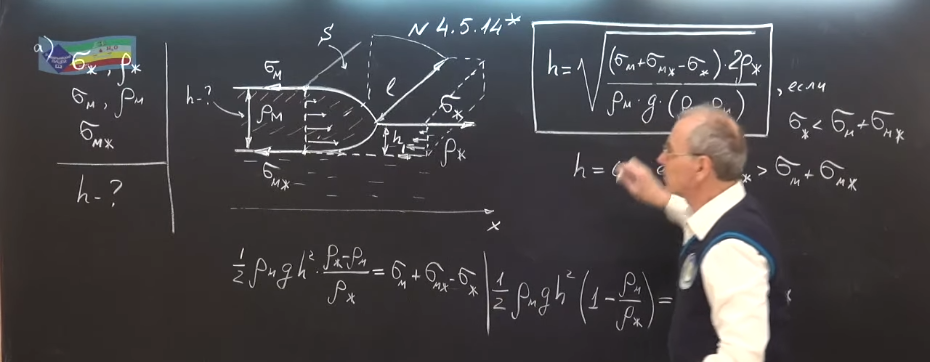 N 4.5.14*
а)
σж, ρж
σм, ρм
σмж
h-?
S
σм
h-?
ρм
l
σж
h₁
ρж
σмж
x
h = √((σм+σмж-σж)·2ρж / ρм·g·(ρ
, если
σж < σм + σмж
h =
> σм + σмж
1/2 ρм g h² · (ρж-ρм)/ρж = σм + σмж - σж
1/2 ρм g h² (1 - ρм/ρж) =